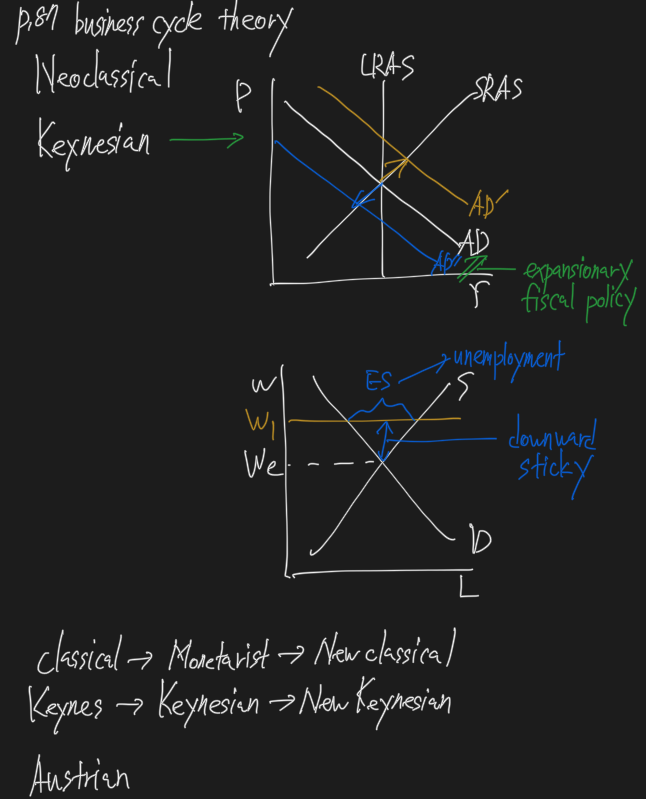 p.87 business cycle theory
Neoclassical
Keynesian
P
LRAS
SRAS
AD'
AD
AD"
Y
expansionary
fiscal policy
W
W1
We
ES
unemployment
S
downward
sticky
D
L
classical → Monetarist → New classical
Keynes → Keynesian → New Keynesian
Austrian